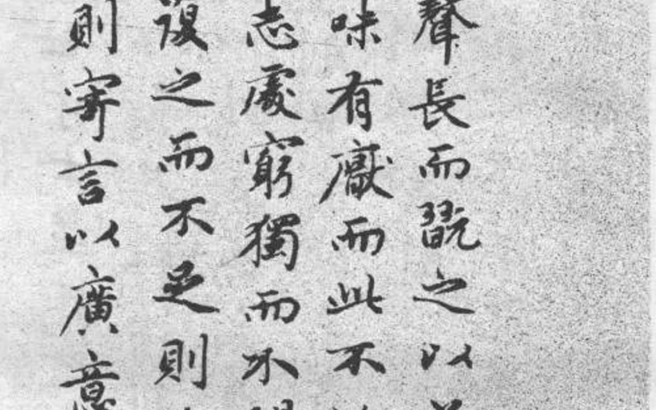 聲長而翫之以
味有厭而此不
志處窮獨而不
復之而不足則
則寄言以廣意